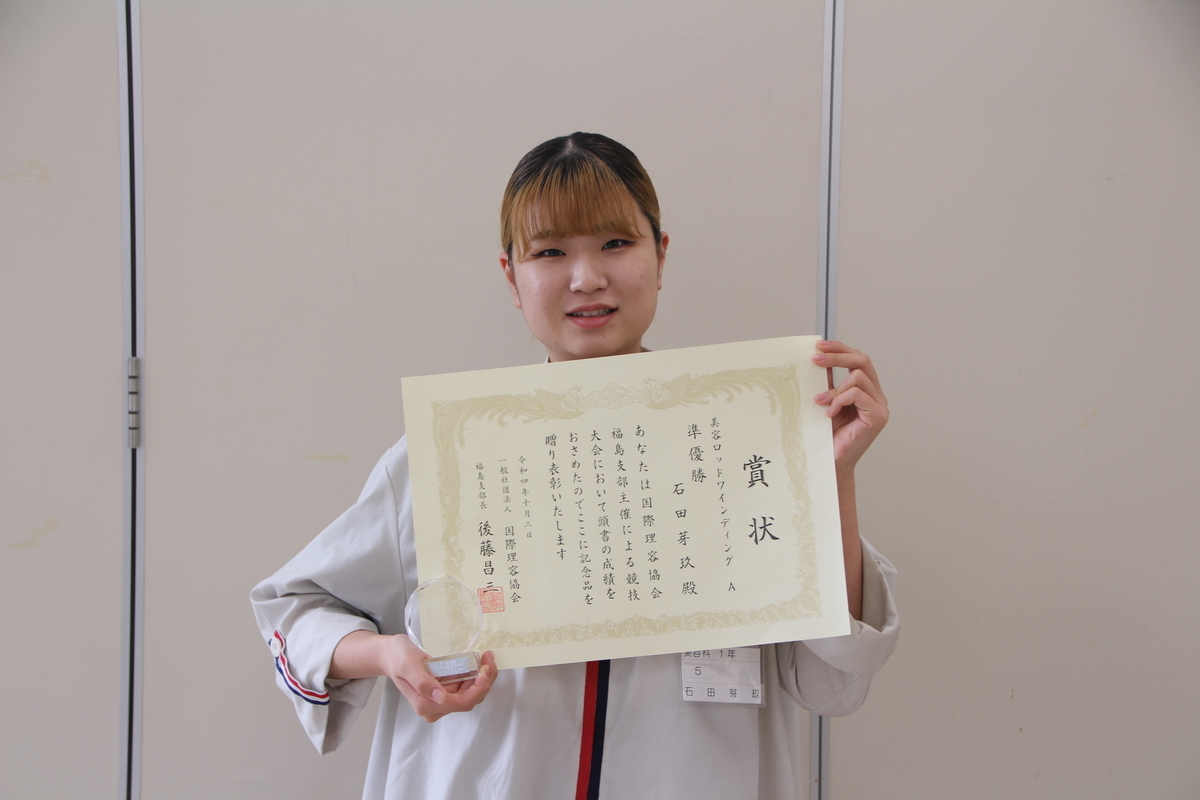 賞状
美容ロッドワインディング A
準優勝
石田芽玖殿
あなたは国際理容協会
福島支部主催による競技
大会において頭書の成績を
おさめたのでここに記念品を
贈り表彰いたします
令和四年十月三日
一般社団法人 国際理容協会
福島支部長 後藤昌三
美容科 1年
5
石田芽玖